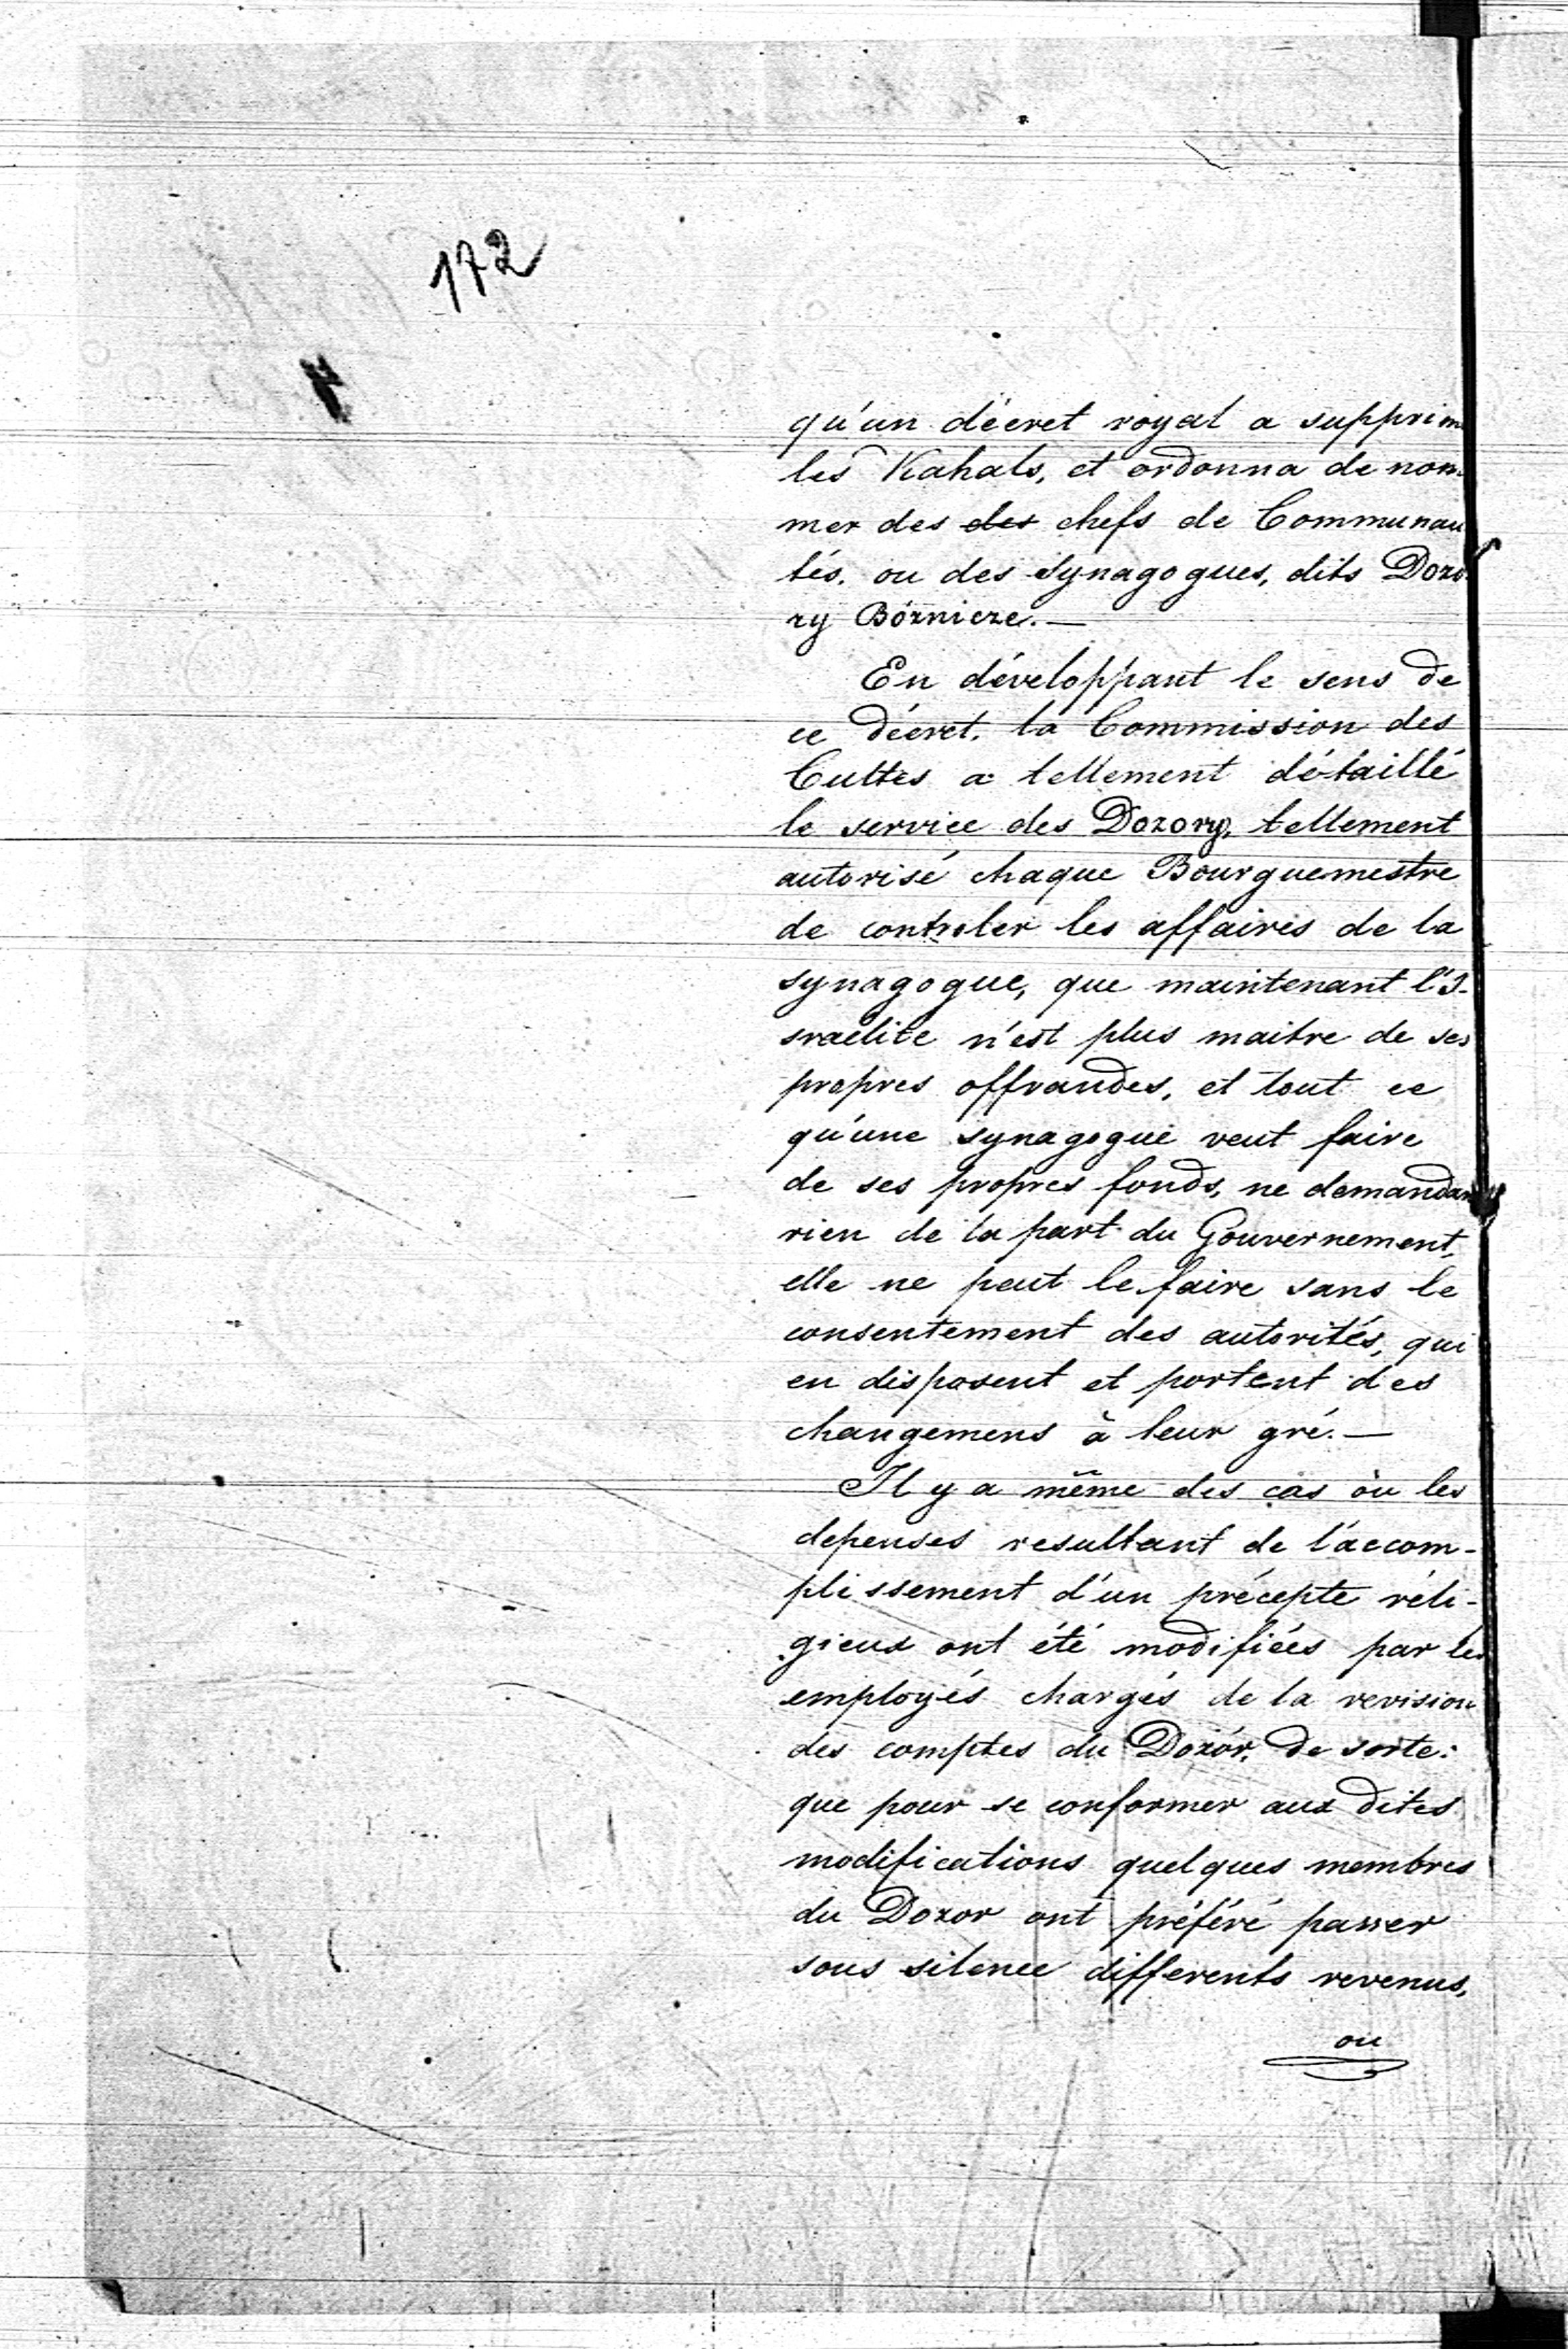 172
qu'un décret royal a supprim
les Kahals, et ordonna de nom-
mer des des chefs de Communau
tés, ou des synagogues, dits Dozo
ry Bóżnicze. —
En développant le sens de
ce décret, la Commission des
Cultes a tellement détaillé
le service des Dozory, tellement
autorisé chaque Bourguemestre
de controler les affaires de la
synagogue, que maintenant l'I-
sraélite n'est plus maitre de ses
propres offrandes, et tout ce
qu'une synagogue veut faire
de ses propres fonds, ne demandan
rien de la part du Gouvernement,
elle ne peut le faire sans le
consentement des autorités, qui
en disposent et portent des
changemens à leur gré. —
Il y a même des cas où les
depenses resultant de l'accom-
plissement d'un précepte réli-
gieux ont été modifiées par les
employés chargés de la revision
des comptes du Dozór, de sorte:
que pour se conformer aux dites
modifications quelques membres
du Dozor ont préféré passer
sous silence differents revenus,
ou